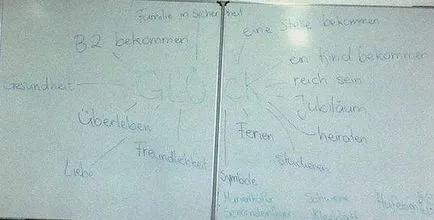 Familie in Sicherheit
eine Stelle bekommen
B2 bekommen
ein Kind bekommen
Gesundheit
GLÜCK
reich sein
Jubiläum
Überleben
Ferien
heiraten
Freundlichkeit
studieren
Liebe
Symbole
Marienkäfer
Schweine
Hufeisen